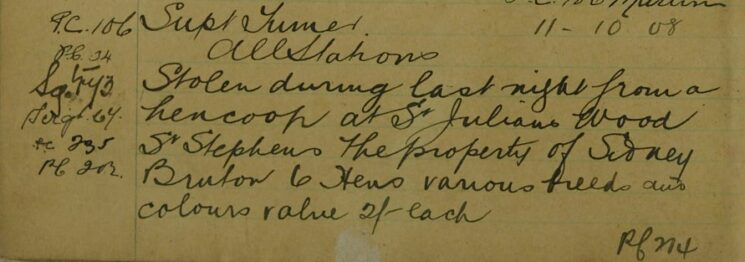 P.C. 106 Martin
P.C. 106 Supt Turner. 11 - 10 08
P.C. 24 All Stations
Sgt 43 Stolen during last night from a
Sergt 64. hencoop at St Julians Wood
PC 235 St Stephens the property of Sidney
PC 202. Bruton 6 Hens various breeds and
colours value 2/- each
PC 274